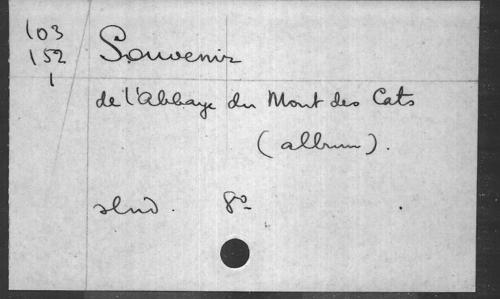 103
152
1
Souvenir
de l'Abbaye du Mont des Cats
(album).
slnd. 8º